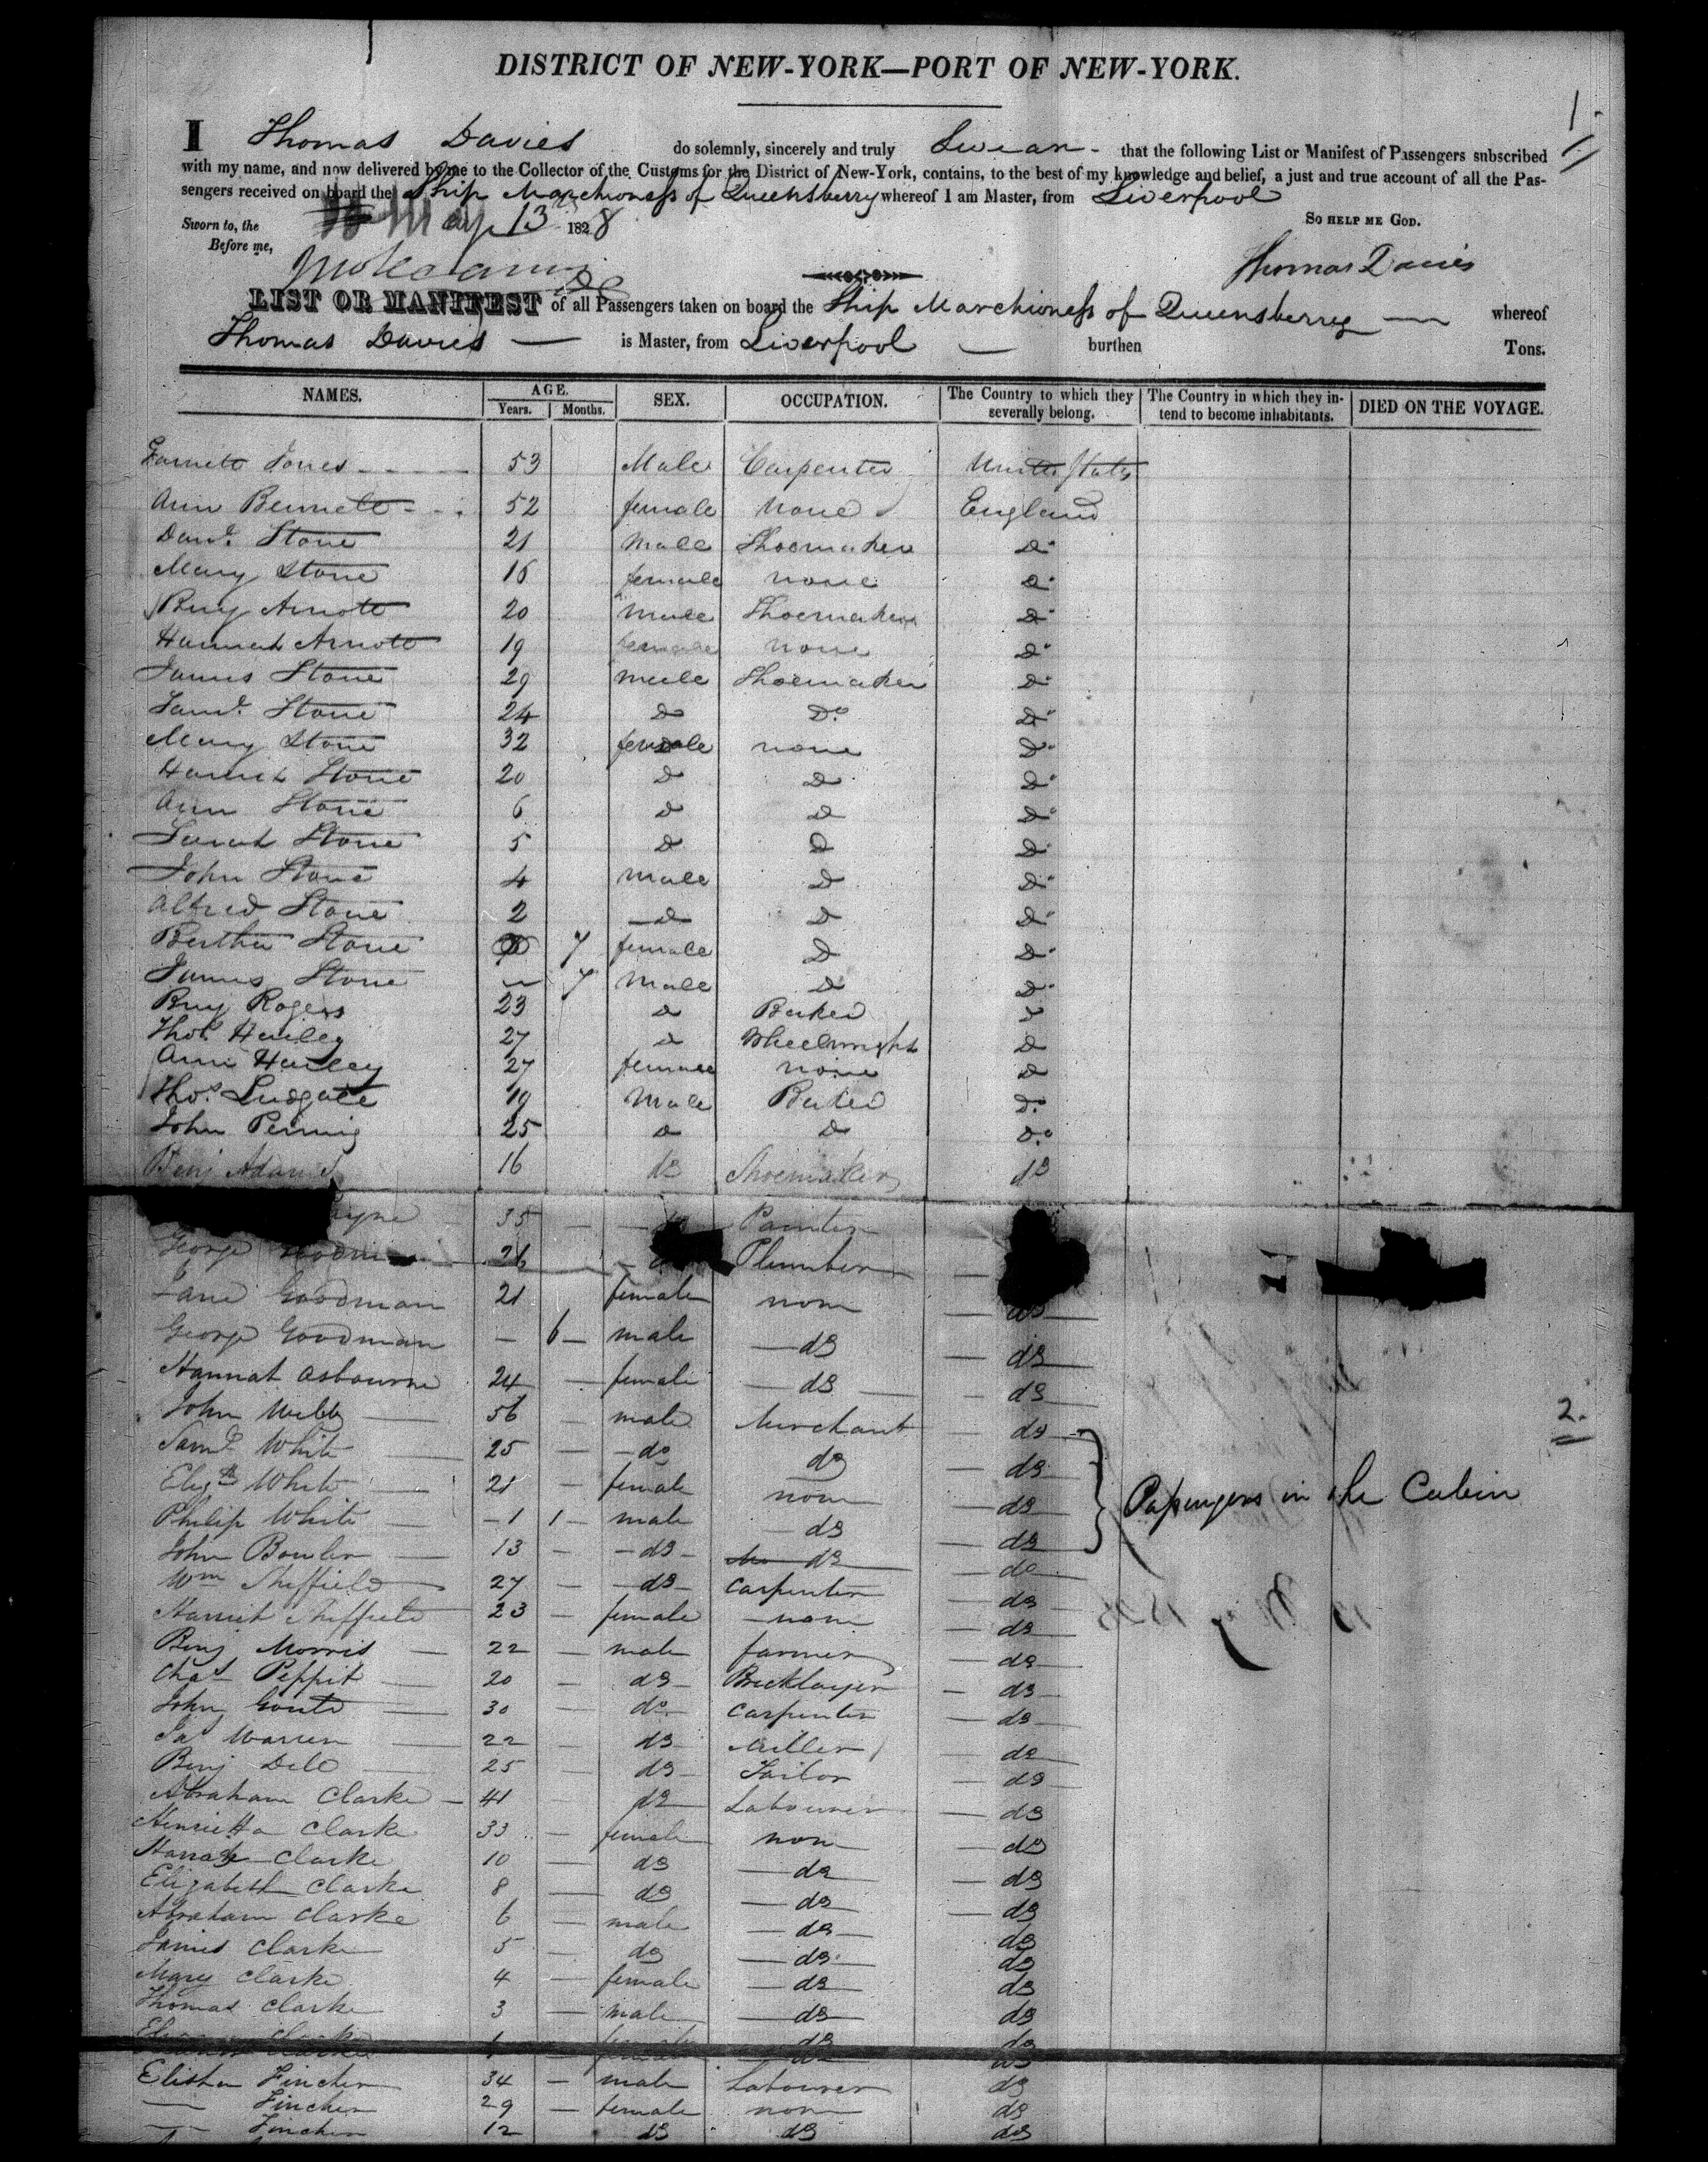 DISTRICT OF NEW-YORK—PORT OF NEW-YORK.
1.
I Thomas Davies do solemnly, sincerely and truly Swear - that the following List or Manifest of Passengers subscribed
with my name, and now delivered by me to the Collector of the Customs for the District of New-York, contains, to the best of my knowledge and belief, a just and true account of all the Pas-
sengers received on board the Ship Marchioness of Queensberry whereof I am Master, from Liverpool
Sworn to, the May 13 1828 So HELP ME GOD.
Before me, Thomas Davies
LIST OR MANIFEST of all Passengers taken on board the Ship Marchioness of Queensberry — whereof
Thomas Davies — is Master, from Liverpool — burthen Tons.
NAMES. AGE. Years. Months. SEX. OCCUPATION. The Country to which they severally belong. The Country in which they in-tend to become inhabitants. DIED ON THE VOYAGE.
Jones 53 Male Carpenter United States
Ann Bennett 52 female None England
Danl. Stone 21 Male Shoemaker Do
Mary Stone 16 female none Do
Benj Arnott 20 Male Shoemaker Do
Hannah Arnott 19 female none Do
James Stone 29 Male Shoemaker Do
Saml. Stone 24 Do Do Do
Mary Stone 32 female none Do
Harriet Stone 20 Do Do Do
Ann Stone 6 Do Do Do
Sarah Stone 5 Do Do Do
John Stone 4 Male Do Do
Alfred Stone 2 Do Do Do
Bertha Stone 7 female Do Do
James Stone — 7 Male Do Do
Benj Rogers 23 Do Baker Do
Thos. Hanley 27 Do Wheelwright Do
Ann Hanley 27 female none Do
Thos. Ludgate 19 Male Baker Do
John 25 Do Do Do
Benj Adams 16 do Shoemaker do
35 — Painter
George 26 Plumber —
Jane Goodman 21 female none — do
George Goodman — 6 — male — do — do
Hannah Asbourne 24 — female — do — do
John Webb — 56 — male Merchant — do
2.
Saml White — 25 — do do — do
Elizth White — 21 — female none — do
Passengers in the Cabin
Philip White — 1 1 — male — do — do
John Bowler — 13 — do — do — do
Wm Sheffield 27 — do — Carpenter — do
Harriet Sheffield 23 — female — none — do
Benj Morris — 22 — male farmer — do
Chas Peppit — 20 — do — Bricklayer — do
John — 30 — do — Carpenter — do
Jas Warren — 22 — do Miller — do
Benj Dell — 25 — do — Tailor — do
Abraham Clarke — 41 do Labourer — do
Henrietta Clarke 33 — female none — do
Clarke 10 — do — do — do
Elizabeth Clarke 8 — do — do — do
Abraham Clarke 6 — male — do — do
James Clarke 5 — do — do do
Mary Clarke 4 — female — do do
Thomas Clarke 3 — male — do do
Clarke 1 female do do
Elisha Fincher 34 — male Labourer do
— Fincher 29 — female none do
— Fincher 12 do do do